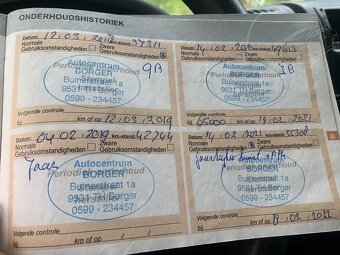 ONDERHOUDSHISTORIEK
Datum: 12.03.2018 km-stand: 37311
Normale Zware
Gebruiksomstandigheden Gebruiksomstandigheden
Periodiek onderhoud
Autocentrum
BORGER
Buinerstraat 1a
9531 TH Borger
0599 - 234457
Volgende controle
km of op 12.03.2019
Datum: 14.02.20
Normale Zware
Gebruiksomstandigheden Gebruiksomstandigheden
Autocentrum
BORGER
Buinerstraat 1a
9531 TH Borger
0599 - 234457
Volgende controle
65000 km of op 14.02.2021
Datum: 04.02.2019 km-stand: 42744
Normale Zware
Gebruiksomstandigheden Gebruiksomstandigheden
Periodiek onderhoud
Autocentrum
BORGER
Buinerstraat 1a
9531 TH Borger
0599 - 234457
Volgende controle
km of op
Datum: 14.02.2021 km-stand:
Normale Zware
Gebruiksomstandigheden Gebruiksomstandigheden
Autocentrum
BORGER
Buinerstraat 1a
9531 TH Borger
0599 - 234457
Volgende controle
km of op 8.02.2022